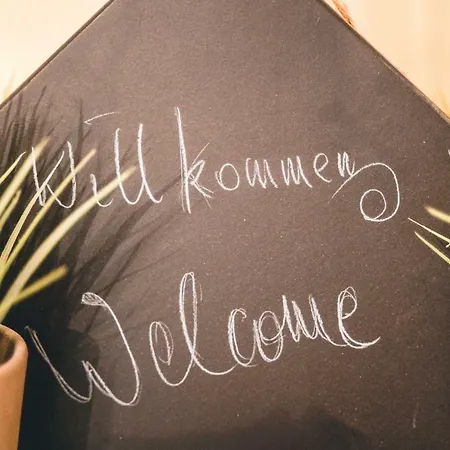 Willkommen
Welcome